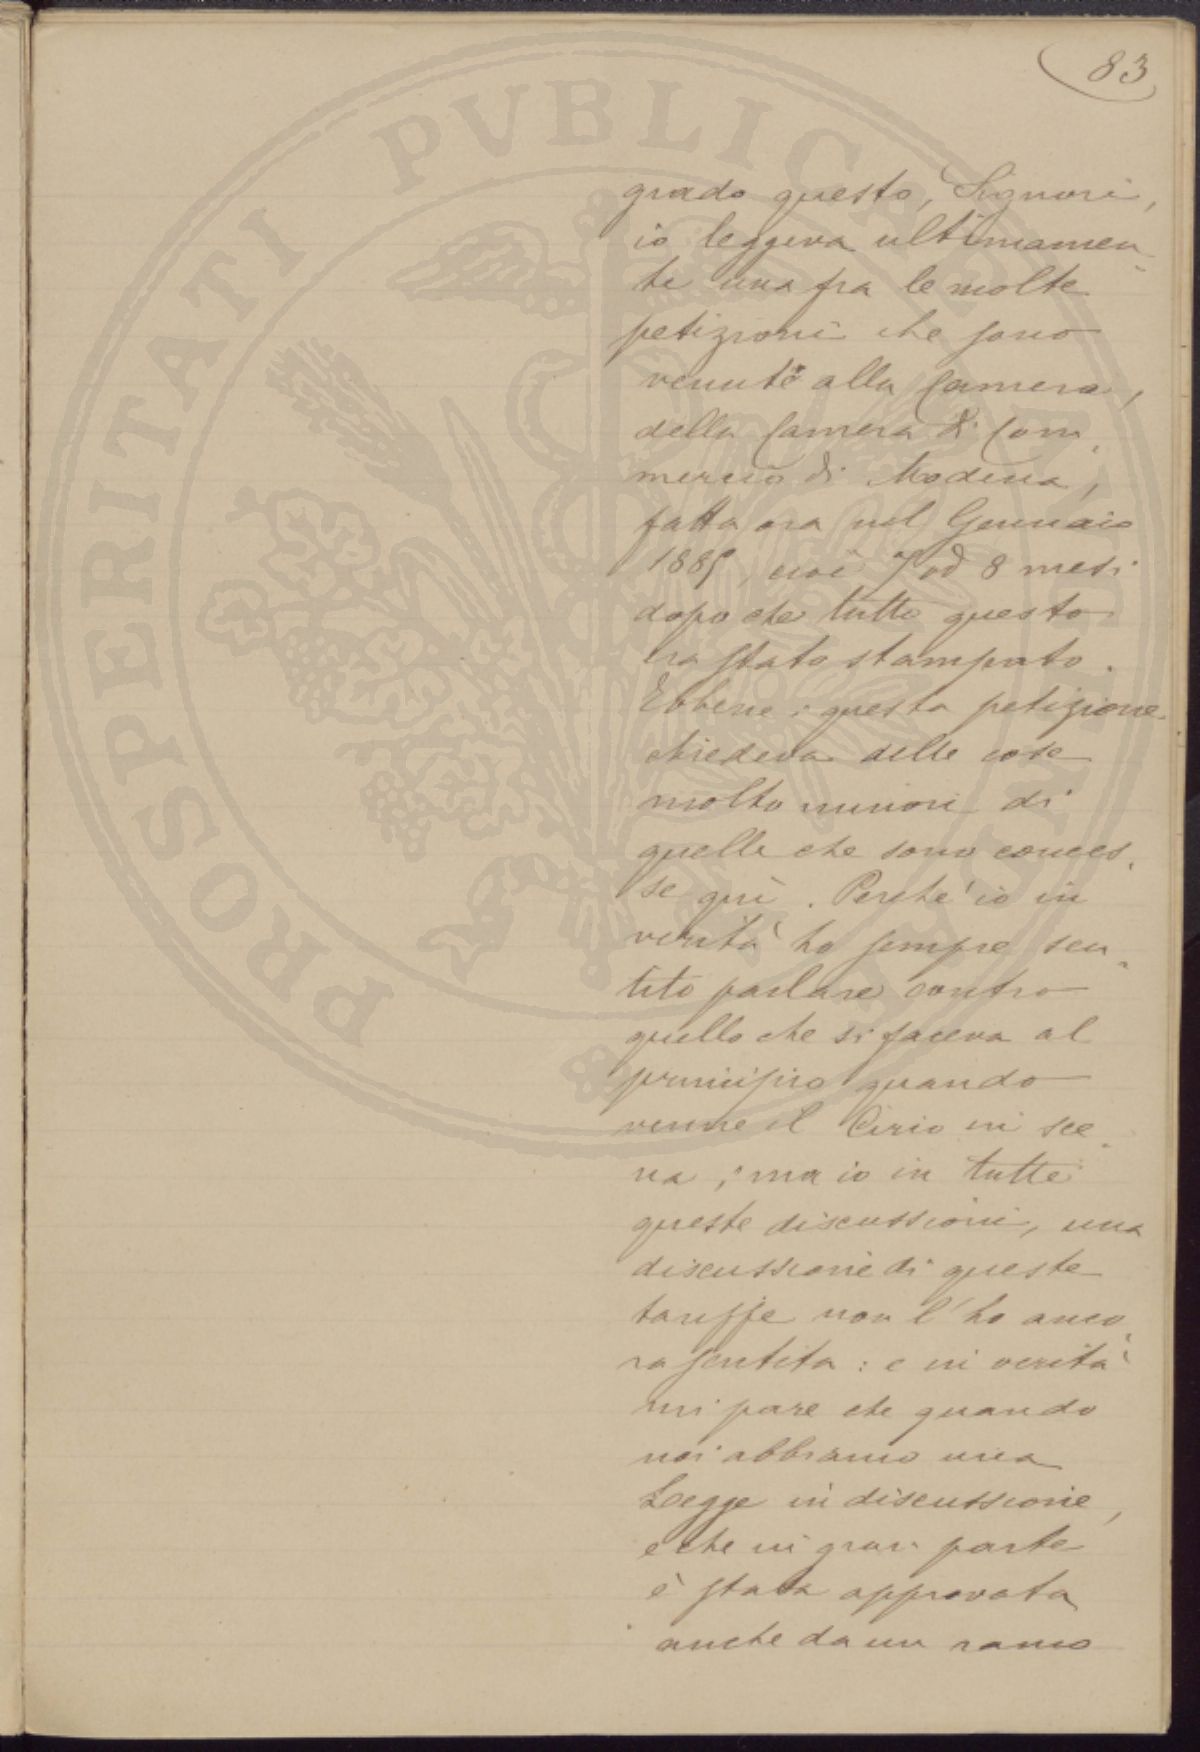 83
PROSPERITATI PVBLICAE
grado questo, Signori,
io leggeva ultimamen
te una fra le molte
petizioni che sono
venute alla Camera,
della Camera di Com
mercio di Modena,
fatta ora nel Gennaio
1885, cioè 7 od 8 mesi
dopo che tutto questo
era stato stampato.
Ebbene: questa petizione
chiedeva delle cose
molto minori di
quelle che sono conces
se quì. Perchè io in
verità ho sempre sen
tito parlare contro
quello che si faceva al
principio quando
venne il Cirio in sce
na; ma io in tutte
queste discussioni, una
discussione di queste
tariffe non l'ho anco
ra sentita: e in verità
mi pare che quando
noi abbiamo una
Legge in discussione,
e che in gran parte
è stata approvata
anche da un ramo